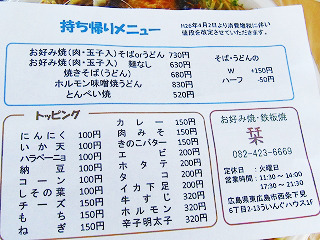 持ち帰りメニュー
H26年4月2日より消費増税に伴い
値段を改定させていただきます。
お好み焼(肉・玉子入)そばorうどん 730円
お好み焼(肉・玉子入) 麺なし 630円
焼きそば(うどん) 680円
ホルモン味噌焼うどん 830円
とんぺい焼 520円
そば・うどんの
W +150円
ハーフ -50円
トッピング
にんにく 100円
いか天 100円
ハラペーニョ 100円
納豆 100円
コーン 100円
しその葉 100円
チーズ 150円
もち 150円
ねぎ 150円
カレー 150円
肉みそ 150円
きのこバター 150円
エビ 200円
ホタテ 200円
タコ 200円
イカ下足 200円
牛すじ 300円
ホルモン 300円
辛子明太子 300円
お好み焼・鉄板焼
栞
082-423-6669
定休日 : 火曜日
営業時間 : 11:30 〜 14:30
17:30 〜 21:30
広島県東広島市西条下見
6丁目2-13ういんぐハウス1F